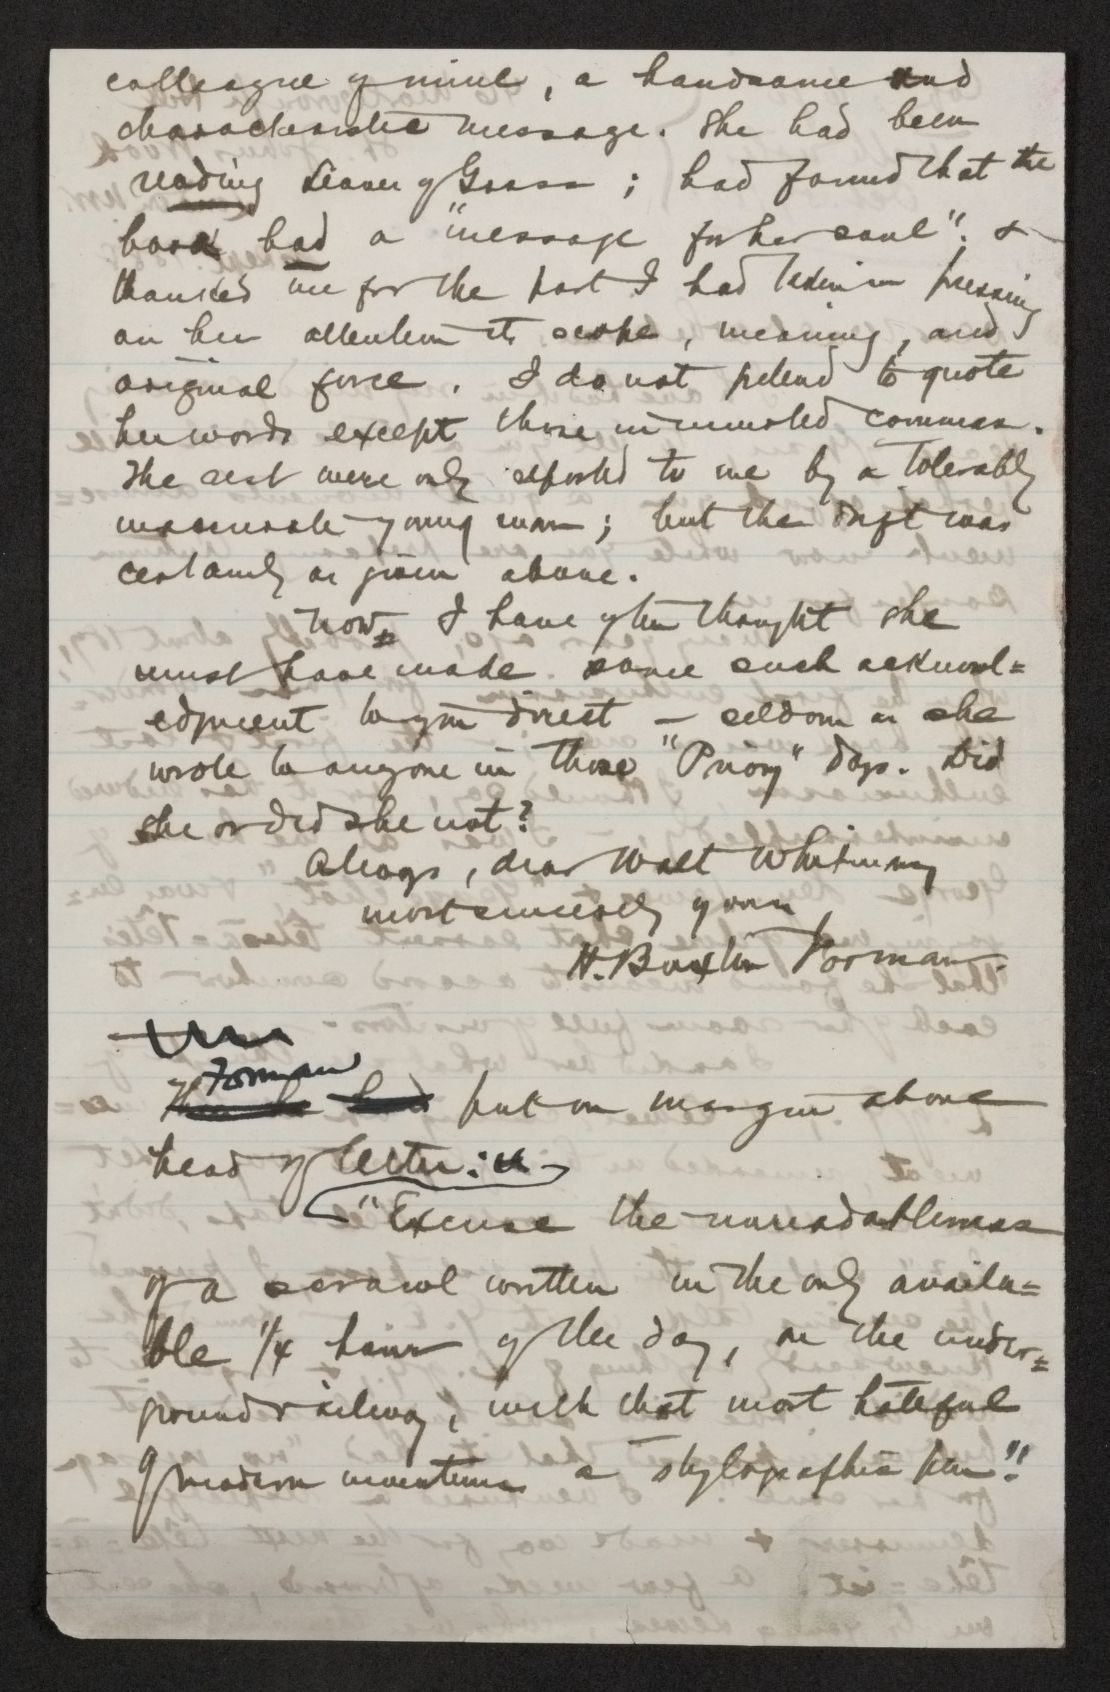 colleague of mine, a handsome and
characteristic message. She had been
reading Leaves of Grass; had found that the
book had a "message for her soul". &
thanked me for the part I had taken in pressing
on her attention its scope, meaning, and
original force. I do not pretend to quote
her words except those in inverted commas.
The rest were only reported to me by a tolerably
inaccurate young man; but the drift was
certainly as given above.
Now, I have often thought she
must have made some such acknowl=
edgment to you direct — seldom as she
wrote to anyone in those "Priory" days. Did
she or did she not?
Always, dear Walt Whitman,
most sincerely yours,
H. Buxton Forman.
Forman
put on margin above
head of letter:
"Excuse the unreadableness
of a scrawl written in the only availa=
ble 1/4 hour of the day, on the under=
ground railway, with that most hateful
of modern inventions a stylographic pen".